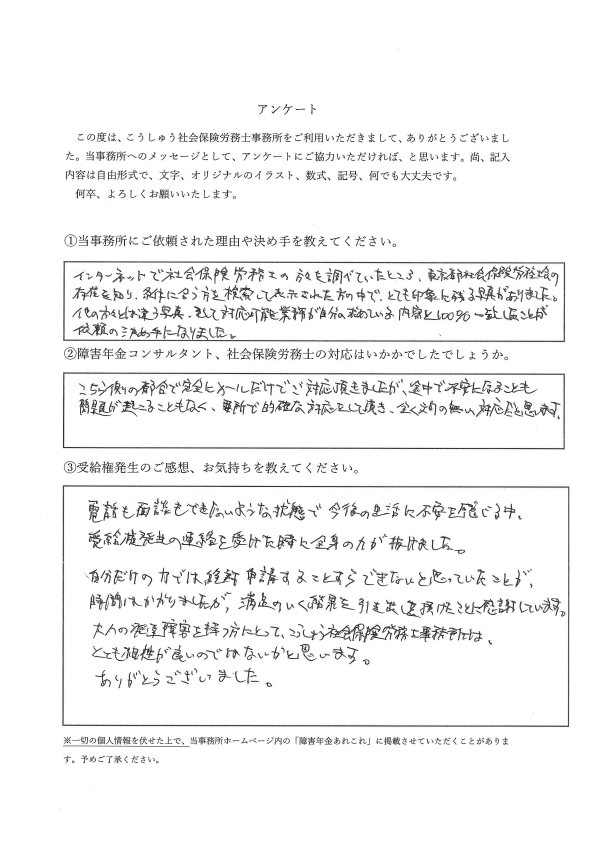 アンケート
この度は、こうしゅう社会保険労務士事務所をご利用いただきまして、ありがとうございまし
た。当事務所へのメッセージとして、アンケートにご協力いただければ、と思います。尚、記入
内容は自由形式で、文字、オリジナルのイラスト、数式、記号、何でも大丈夫です。
何卒、よろしくお願いいたします。
①当事務所にご依頼された理由や決め手を教えてください。
インターネットで社会保険労務士の方々を調べていたところ、東京都社会保険労務士会の
存在を知り、条件に合う方を検索して表示された方の中で、とても印象に残る写真がありました。
他の方々とは違う写真、そして対応可能な業務が自分の求めている内容と100%一致したことが
依頼の決め手になりました。
②障害年金コンサルタント、社会保険労務士の対応はいかかでしたでしょうか。
こちら側の都合で完全にメールだけでご対応頂きましたが、途中で不安になることも
問題が起こることもなく、要所で的確な対応をして頂き、全く文句の無い対応だと思います。
③受給権発生のご感想、お気持ちを教えてください。
電話も面談もできないような状態で今後の生活に不安を感じる中、
受給権発生の連絡を受けた時に全身の力が抜けました。
自分だけの力では絶対申請することすらできないと思っていたことが、
時間はかかりましたが、満足のいく結果を引き出し頂けたことに感謝しています。
大人の発達障害を持つ方にとって、こうしゅう社会保険労務士事務所は、
とても相性が良いのではないかと思います。
ありがとうございました。
※一切の個人情報を伏せた上で、当事務所ホームページ内の「障害年金あれこれ」に掲載させていただくことがありま
す。予めご了承ください。